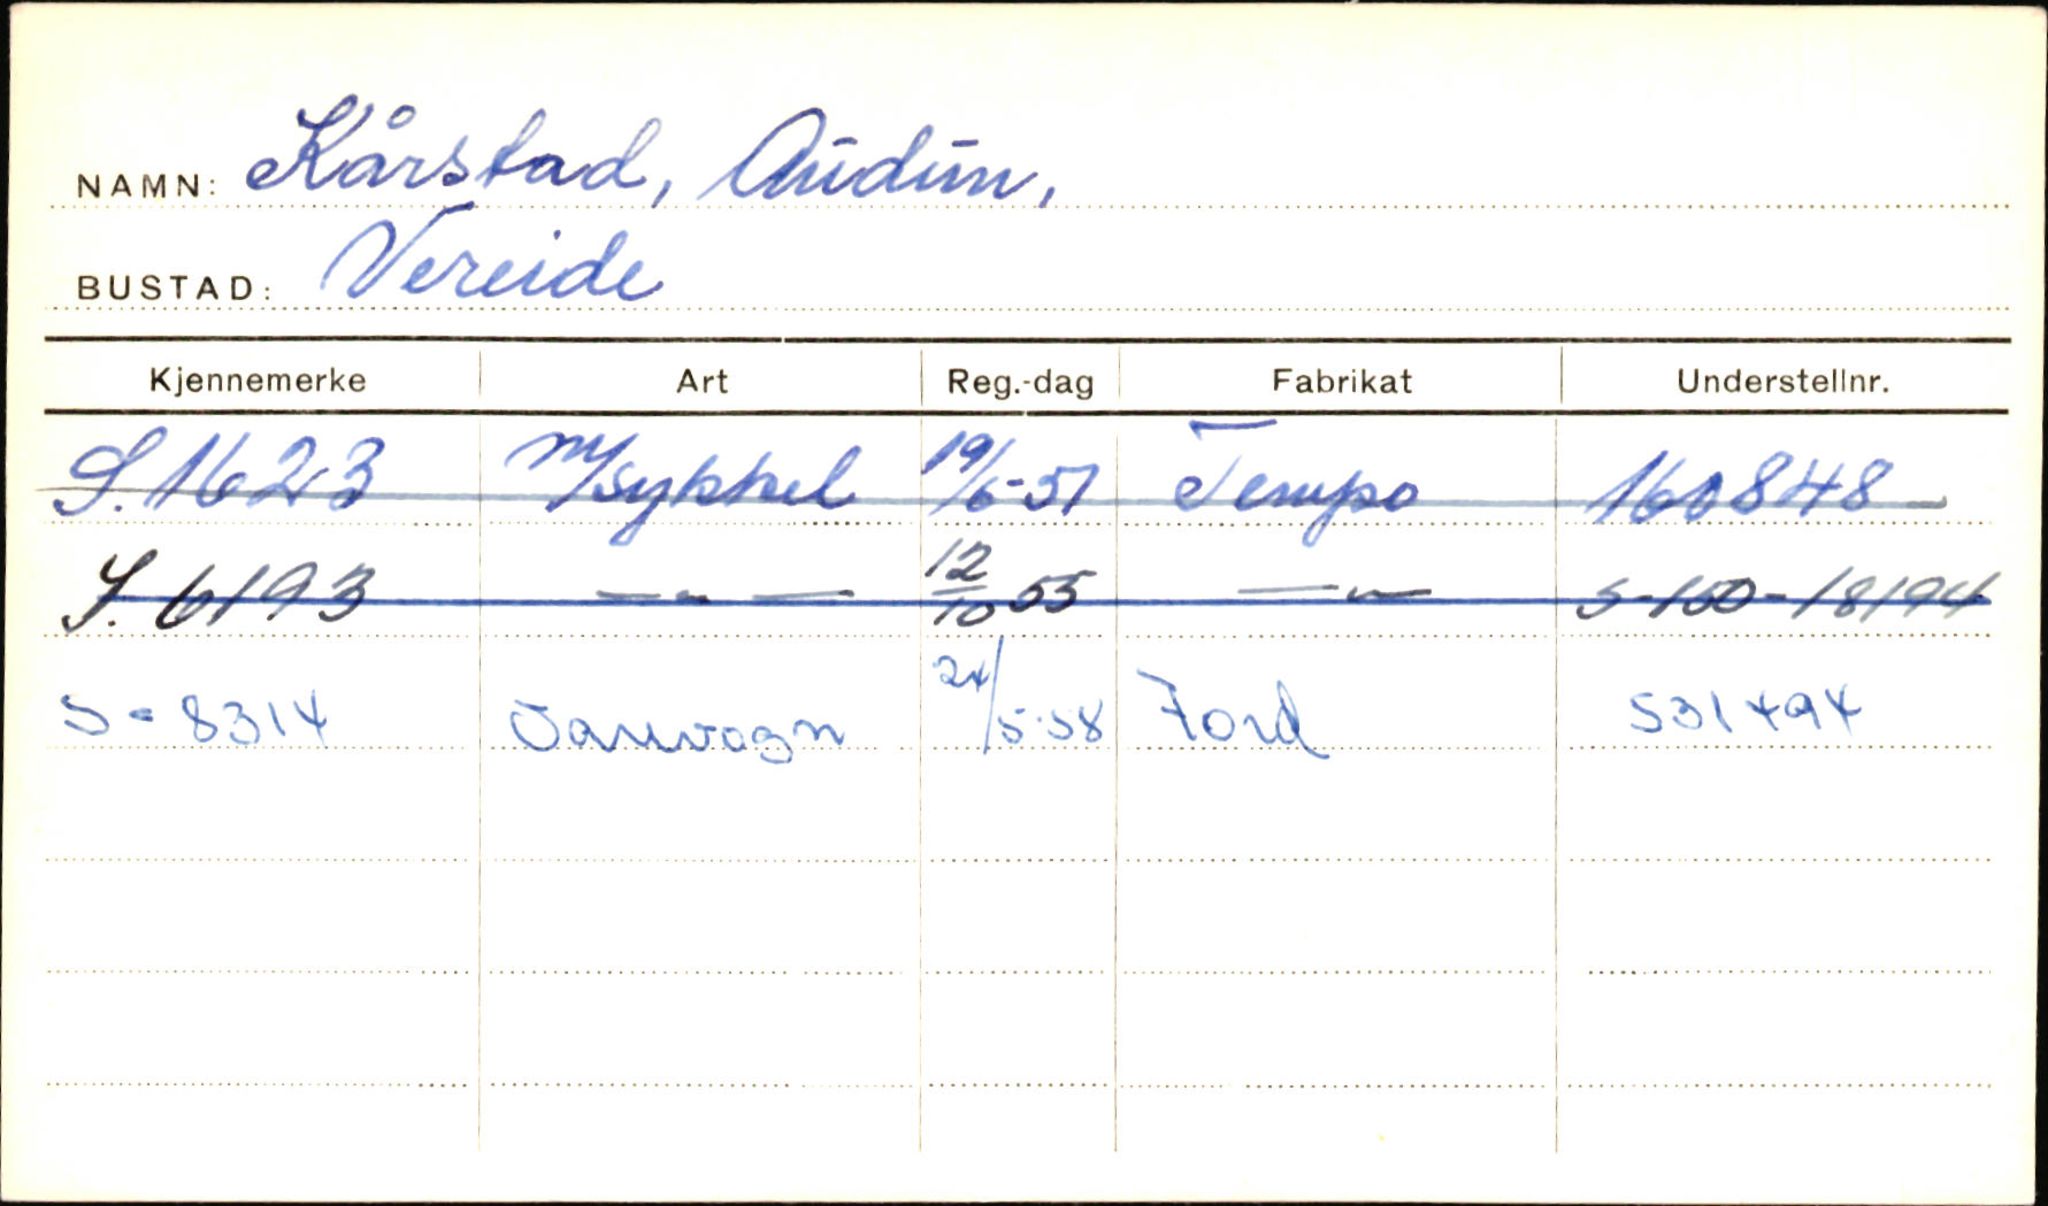 NAMN: Kårstad, Audun,
BUSTAD: Vereide
Kjennemerke Art Reg.-dag Fabrikat Understellnr.
S. 1623 m/sykkel 19/6-51 Tempo 160848
S. 6193 — „ — 12/10 55 — „ — S-150-18194
S - 8314 Varevogn 24/5-58 Ford 531494